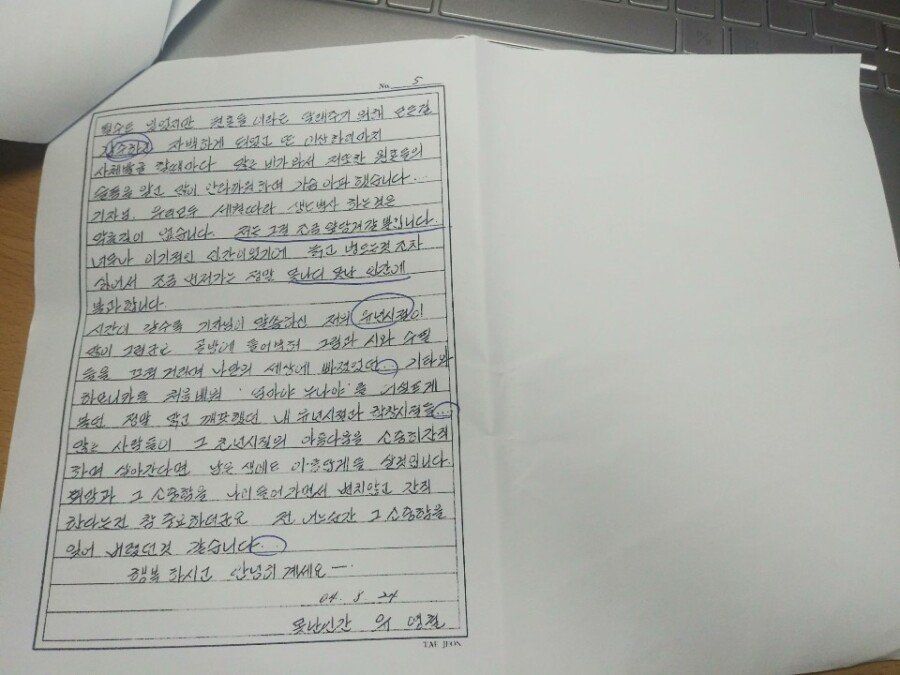 No. 5
될수도 있었지만 원혼들이라도 달래주기 위해 모든걸
자수하고 자백하게 되었고 또 이상하리마치
사체발굴 할때마다 많은 비가와서 저또한 원혼들의
슬픔을 알고 많이 안타까워하며 가슴아파했습니다...
기자님. 우리모두 세월따라 생노병사 하는것은
막을길이 없습니다. 저는 그저 조금 앞당겨갈 뿐입니다.
너무나 이기적인 인간이었기에 늙고 병드는것조차
싫어서 조금 먼저가는 정말 못나디 못난 인간에
불과합니다.
시간이 갈수록 기자님이 말씀하신 저의 유년시절이
많이 그립군요 골방에 틀어박혀 그림과 시와 수필
등을 끄적거리며 나만의 세상에 빠져있던... 기타와
하모니카를 처음배워 '엄마야 누나야'를 어설프게
불던 정말 맑고 깨끗했던 내 유년시절과 학창시절들...
많은 사람들이 그 소년시절의 아름다움을 소중히간직
하며 살아간다면 남은 생애도 아름답게들 살것입니다.
희망과 그 소중함을 나이들어가면서 변치않고 간직
한다는건 참 중요하더군요 전 어느순간 그 소중함을
잊어 버렸던것 같습니다...
행복하시고 안녕히 계세요—.
04. 8 24
못난인간 유 영철
TAE JEON